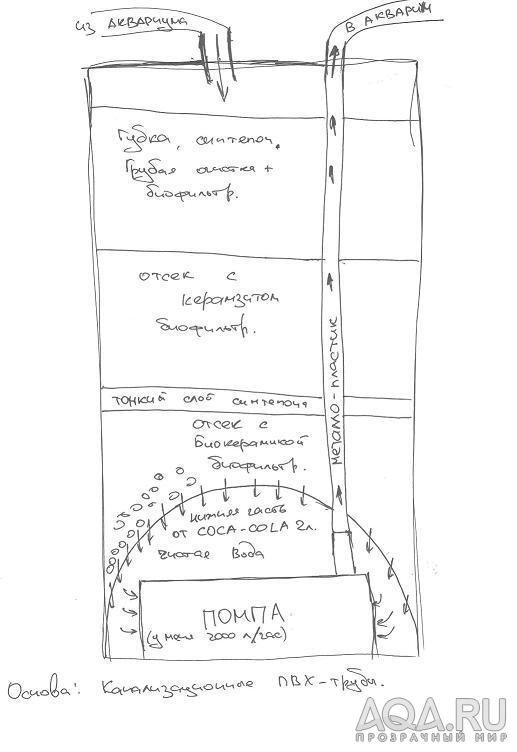 из аквариума
в аквариум
Губка, синтепон.
Грубая очистка +
биофильтр.
отсек с
керамзитом
биофильтр.
тонкий слой синтепона
отсек с
Биокерамикой
биофильтр.
металло-пластик
нижняя часть
от COCA-COLA 2л.
чистая вода
ПОМПА
(у меня 2000 л/час)
Основа: Канализационные ПВХ-трубы.
AQA.RU
ПРОЗРАЧНЫЙ МИР